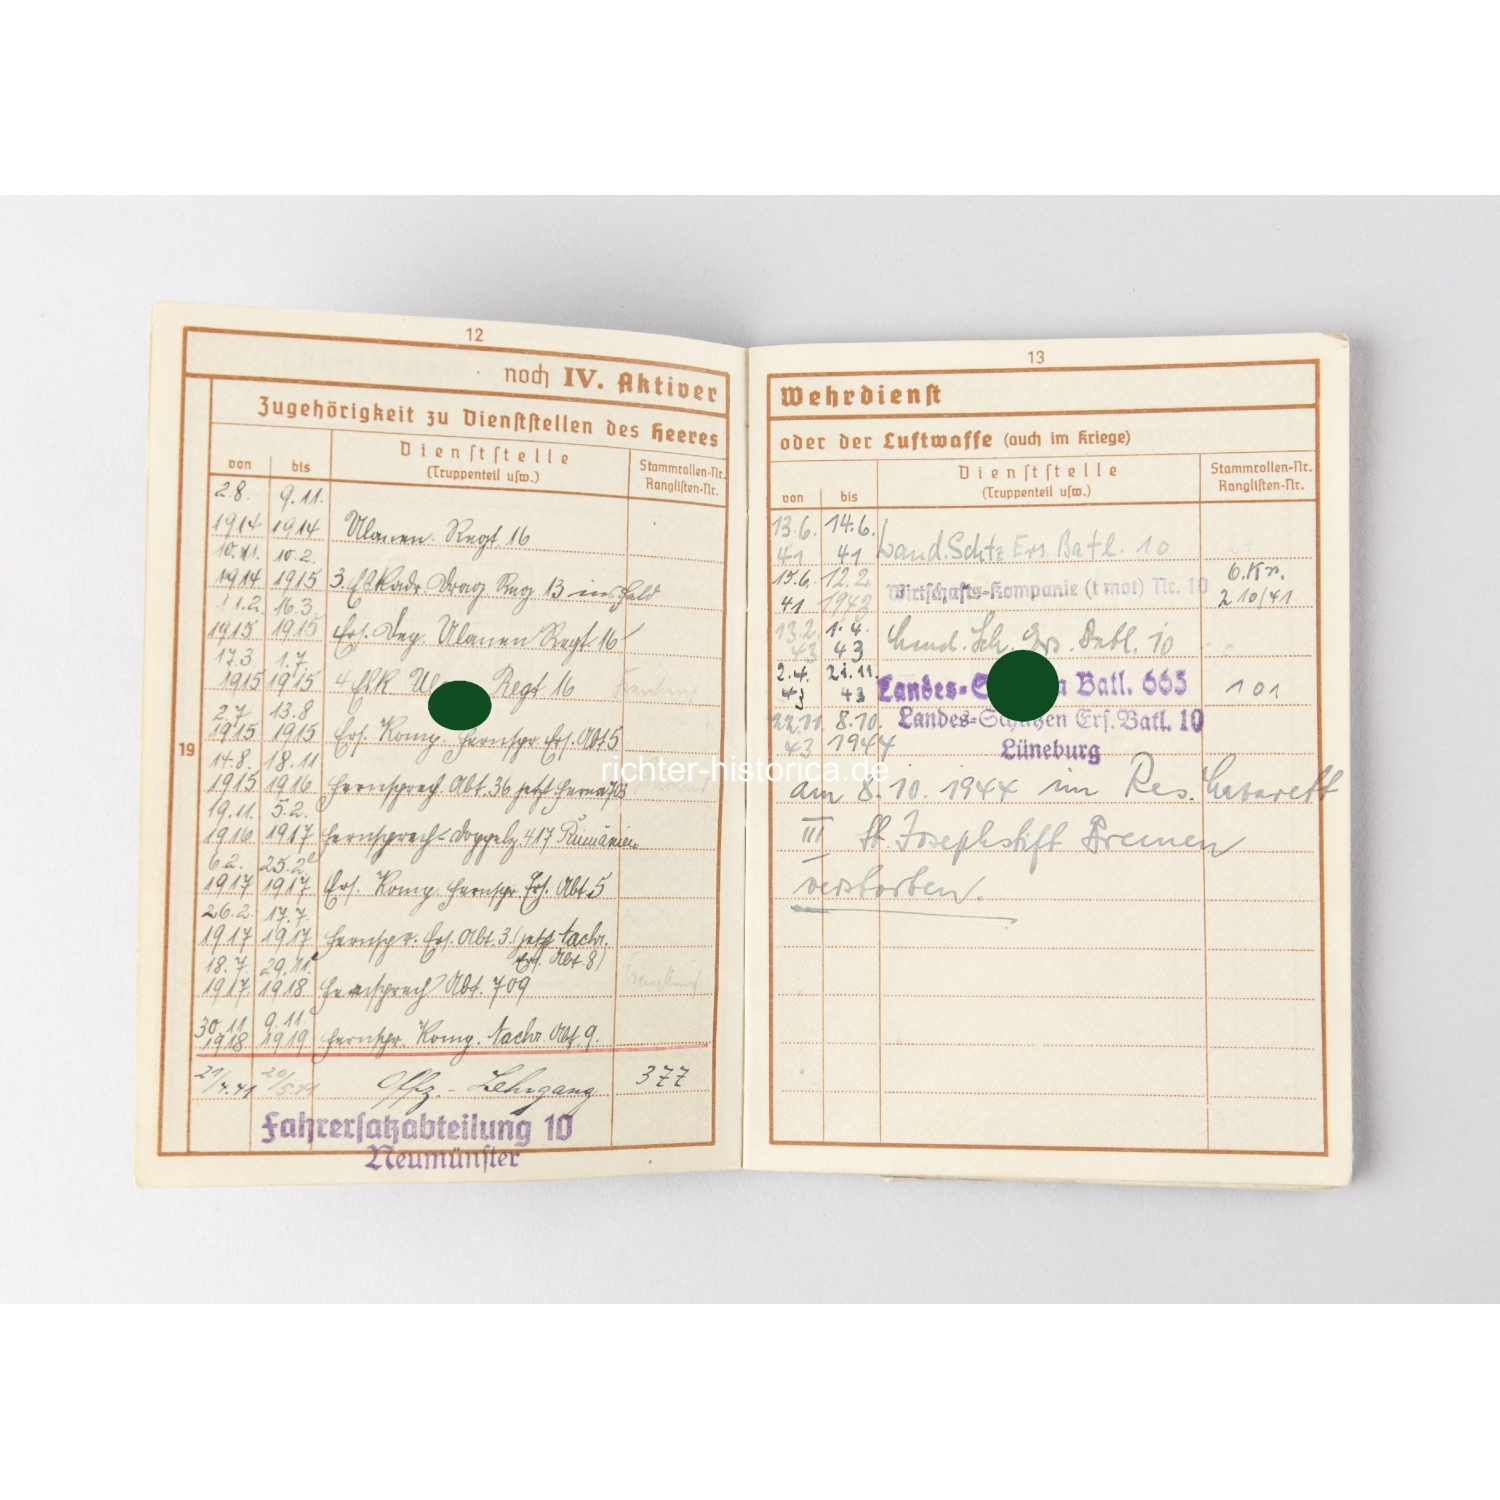 12
noch IV. Aktiver
Zugehörigkeit zu Dienststellen des Heeres
von bis Dienststelle (Truppenteil usw.) Stammrollen-Nr. Ranglisten-Nr.
2.8. 9.11.
1914 1914 Ulanen Regt 16
10.11. 10.2.
1914 1915 3. Drag Reg. 13 ins Feld
11.2. 16.3.
1915 1915 Ers. Ulanen Regt 16
17.3 1.7.
1915 1915 4 Regt 16
2.7. 13.8
1915 1915 Ers. Komp. Fernspr. Ers. Abt 5
14.8. 18.11
1915 1916 Fernsprech. Abt. 36 jetzt 703
19.11. 5.2.
1916 1917 Fernsprech-Doppelz. 417 Rumänien
6.2. 25.2
1917 1917 Ers. Komp. Fernspr. Ers. Abt 5
26.2. 17.7.
1917 1917 Fernspr. Ers. Abt. 3. (jetzt Nachr.
Ers. Abt 8)
18.7. 29.11.
1917. 1918 Fernsprech Abt. 709
30.11 9.11.
1918 1919 Fernspr. Komp. Nachr. Abt. 9.
21/4.41 20/5.41 Offz.-Lehrgang 377
Fahrersatzabteilung 10
Neumünster
19
13
Wehrdienst
oder der Luftwaffe (auch im Kriege)
von bis Dienststelle (Truppenteil usw.) Stammrollen-Nr. Ranglisten-Nr.
13.6. 14.6.
41 41 Land.Schtz.Ers.Batl. 10
15.6. 12.2. 6.Kr.
41 1943 Wirtschafts-Kompanie (t mot) Nr. 10 210/41
13.2. 1.4.
43 43 Land. Sch. Ers. Batl. 10
2.4. 21.11.
43 43 Landes- Batl. 665 101
22.11. 8.10. Landes-Schützen Ers.Batl. 10
43 1944 Lüneburg
richter-historica.de
am 8.10.1944 im Res. Lazarett
III St. Josephstift Bremen
verstorben.